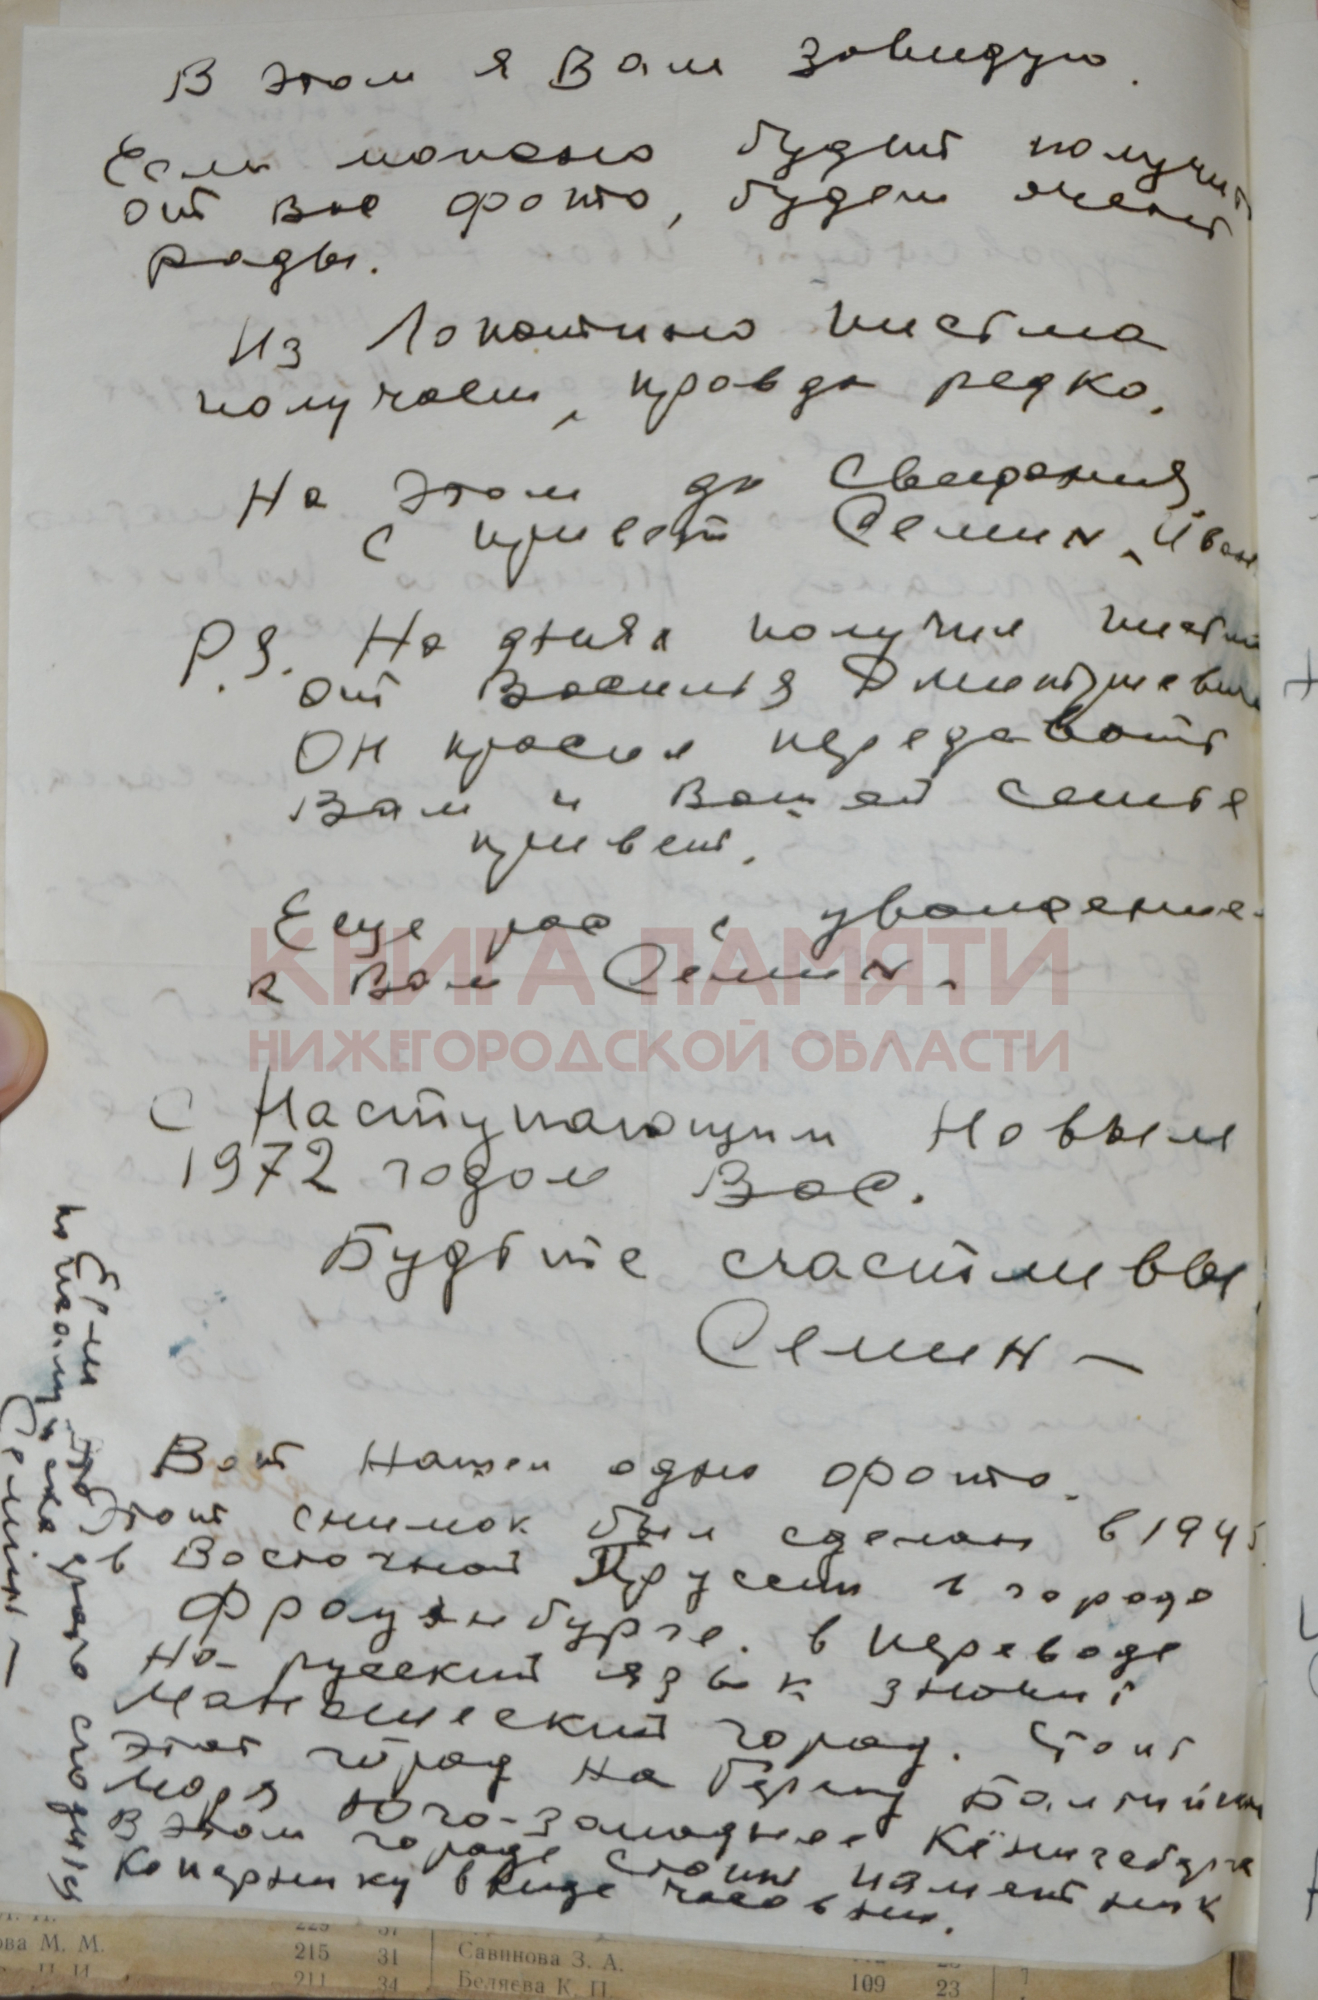 В этом я Вам завидую.
Если можно будет получить
от вас фото, будем очень
рады.
Из Лопатино письма
получаем, правда редко.
На этом до свидания
с привет Семин, Иван
P.S. На днях получил письмо
от Василия Дмитриевича
Он просил передавать
Вам и Вашей семье
привет.
Еще раз с уважение-
к Вам Семин.
КНИГА ПАМЯТИ
НИЖЕГОРОДСКОЙ ОБЛАСТИ
С Наступающим Новым
1972 годом Вас.
Будьте счастливы.
Семин —
Вот нашел одно фото.
Этот снимок был сделан в 1945.
в Восточной Пруссии в городе
Фрауэнбурге. в переводе
на русский язык значит
город. Стоит
этот город на берегу Балтийск
моря Юго-западнее Кёнигсберга
В этом городе стоит памятник
Копернику в виде часовни.
Если это фото сгодится
Семин —
ова М. М. 215 31
211 34
Савинова З. А.
Беляева К. П. 109 23